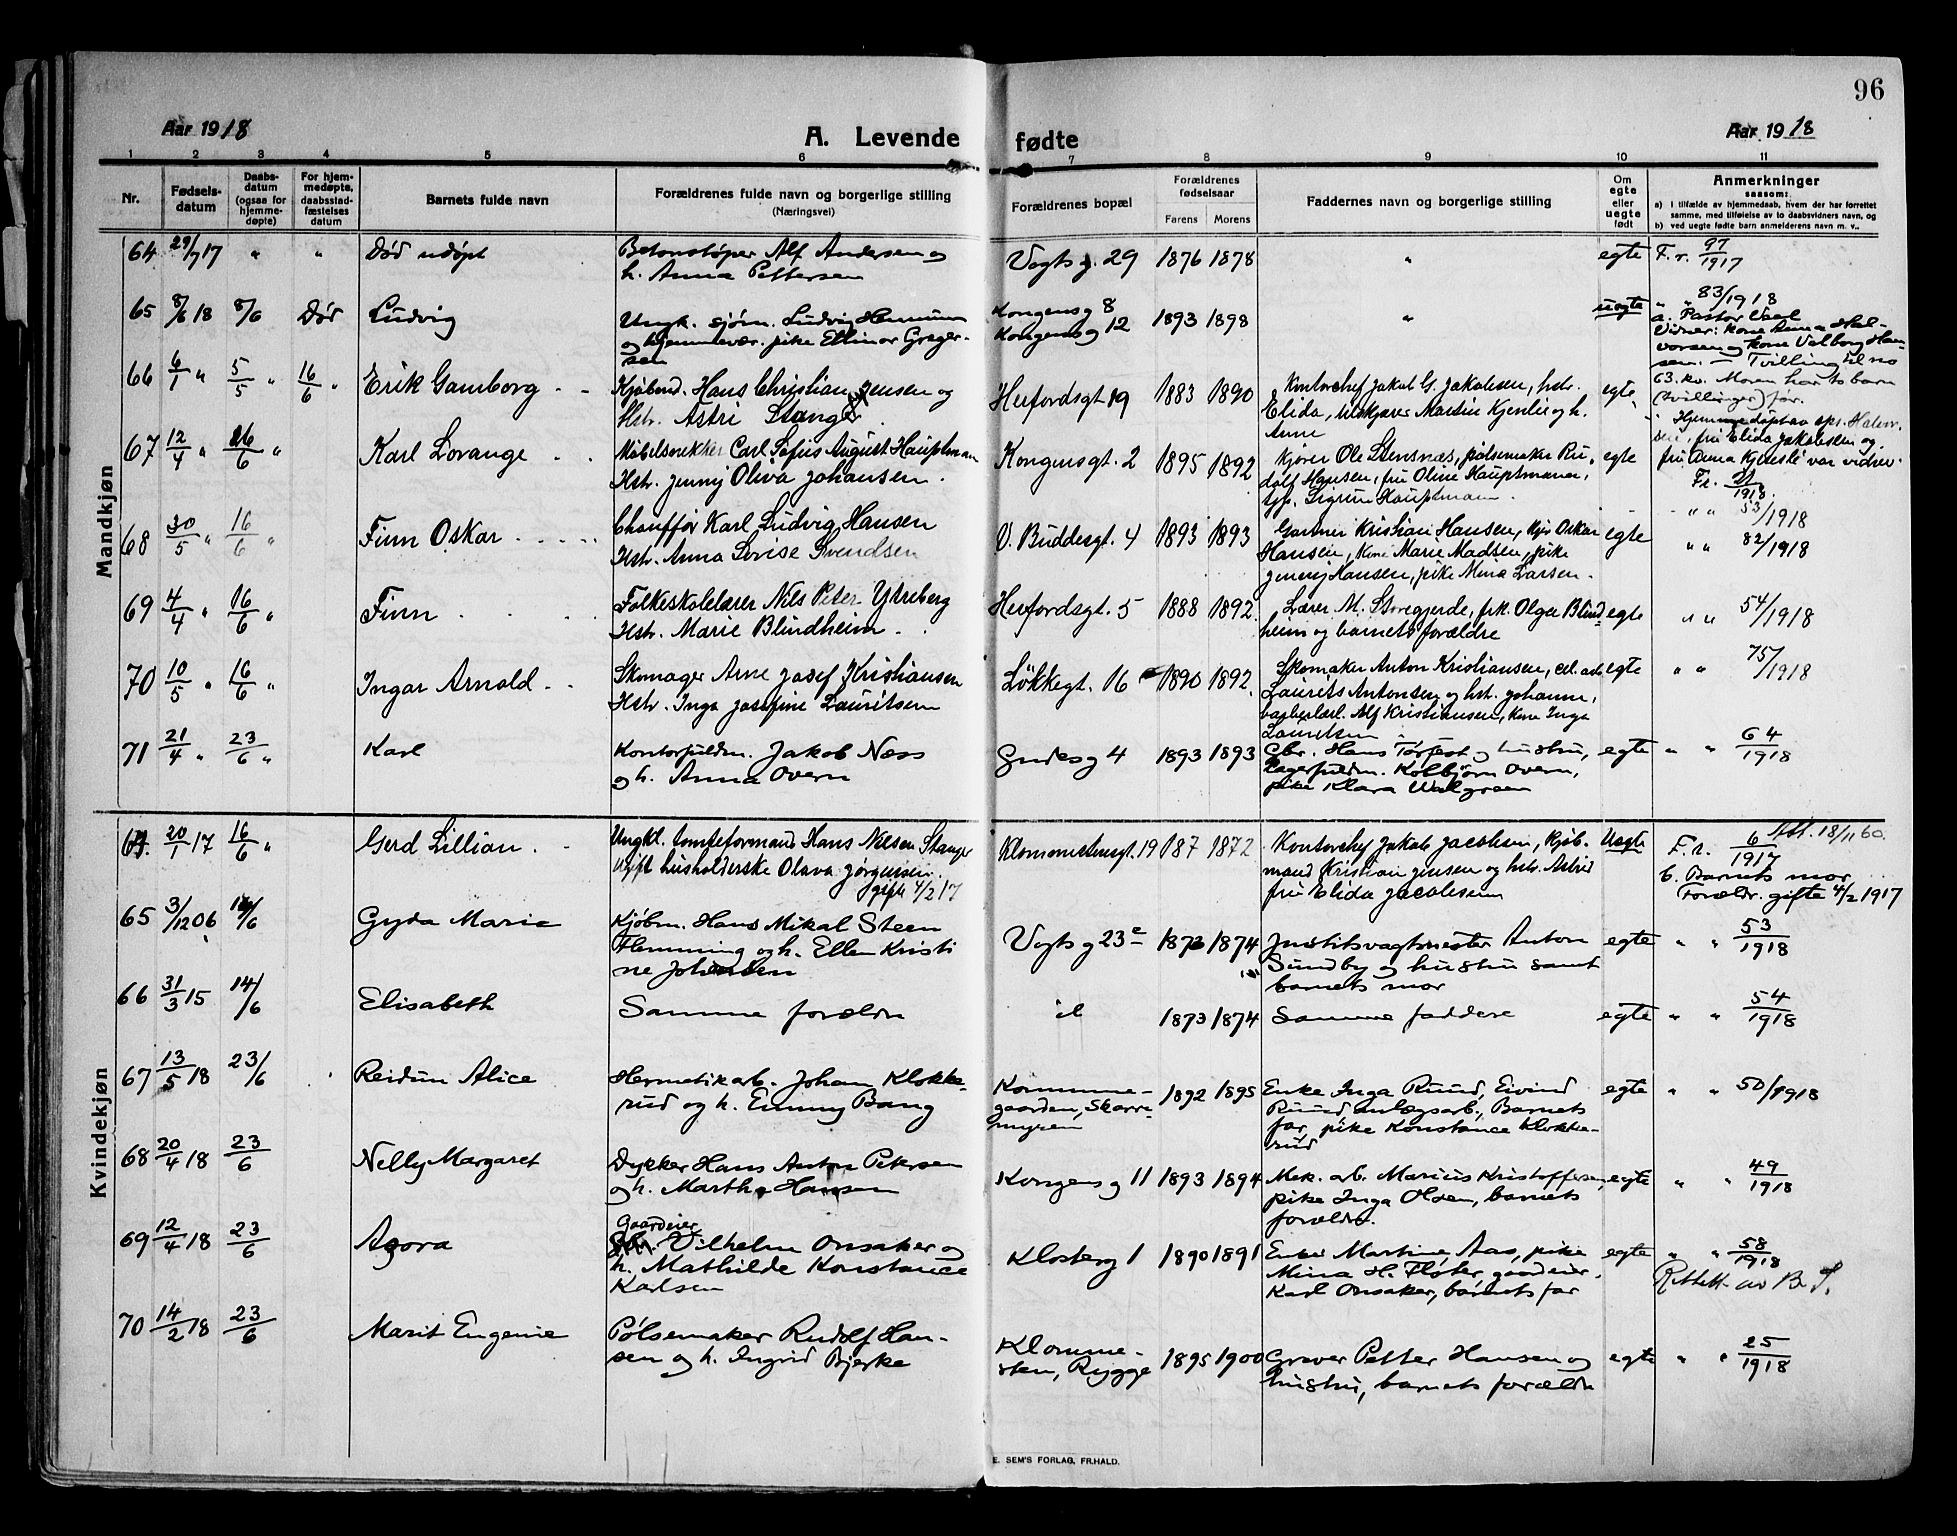 96
Aar 1918
A. Levende fødte
Aar 1918
1 2 3 4 5 6 7 8 9 10 11
Nr.
Fødsels-
datum
Daabs-
datum
(ogsaa for
hjemme-
døpte)
For hjem-
medøpte,
daabsstad-
fæstelses
datum
Barnets fulde navn
Forældrenes fulde navn og borgerlige stilling
(Næringsvei)
Forældrenes bopæl
Forældrenes
fødselsaar
Farens Morens
Faddernes navn og borgerlige stilling
Om
egte
eller
uegte
født
Anmerkninger
saasom:
a) i tilfælde av hjemmedaab, hvem der har forrettet
samme, med tilføielse av to daabsvidners navn, og
b) ved uegte fødte barn anmelderens navn m. v..
Mandkjøn
64 29/7 17 " " Død udøpt
Betonstøper Alf Andersen og
h. Anna Pettersen
Vogts g. 29 1876 1878 " egte F. r. 97/1917
65 8/6 18 8/6 Død Ludvig
Ungk. sjøm. Ludvig Hennum
og hjemmevær. pike Ellinor Greger-
sen
Kongens g 8
Kongens g 12 1893 1898 " uegte
" " 83/1918
a. Pastor Vaal
Vidner: kone Anna Hal-
vorsen og kone Valborg Han-
sen. — Tvilling til no
63. kv. Moren har to barn
(tvillinger) før.
66 6/1 " 5/5 " 16/6 " Erik Gamborg
Kjøbmd. Hans Christian Jensen og
Hstr. Astri Stanger
Herfordsgt 19 1883 1890
Kontorchef Jakob G. Jakobsen, hstr.
Elida, Martin Kjenlie og h.
Anne
egte
Hjemmedøpt av
fru Elida Jakobsen og
fru Anna var vidner.
Fr. /1918.
67 12/4 " 16/6 " Karl Lorange
Møbelsnekker Carl Sofus August Hauptman
Hstr. Jenny Oliva Johansen.
Kongensgt. 2 1895 1892
Kjører Ole Stensnæs, pølsemaker Ru-
dolf Hansen, fru Oline Hauptmann,
Sigrun Hauptmann.
egte " " 53/1918
68 30/5 " 16/6 " Finn Oskar
Chauffør Karl Ludvig Hansen
Hstr. Anna Lovise Svendsen
V. Buddesgt. 4 1893 1893
Gartner Kristian Hansen, Oskar
Hansen, Kone Marie Madsen, pike
Jenny Hansen, pike Mina Larsen.
egte " " 82/1918
69 4/4 " 16/6 " Finn
Folkeskolelærer Nils Peter Ytreberg
Hstr. Marie Blindheim.
Herfordsgt. 5 1888 1892.
Lærer M. Storegjerde, frk. Olga Blind-
heim og barnets forældre
egte " " 54/1918
70 10/5 " 16/6 " Ingar Arnold
Skomager Arne Josef Kristiansen
Hstr. Inga Josefine Lauritsen
Løkkegt. 16 1890 1892.
Skomaker Anton Kristiansen,
Laurits Antonsen og hst. Johanne,
Alf Kristiansen, Kone Inga
Lauritsen.
egte " " 75/1918
71 21/4 " 23/6 " Karl
Kontorfuldm. Jakob Næss
og h. Anna Overn
Gudes g 4 1893 1893
Hans Torfest og hustru,
Lagerfuldm. Kolbjørn Overn,
pike Klara Walgreen
egte " " 64/1918
Kvindekjøn
64. 20/1 17 16/6 " Gerd Lillian
Ungkl. tomteformand Hans Nilsen Stanger
Ugift husholderske Olava Jørgensen.
gift 4/2 17
Klommestensgt. 19 187 1872
Kontorchef Jakob Jacobsen, Kjøb-
mand Kristian Jensen og hstr. Astrid
fru Elida Jacobsen
Uegte
F. r. 6/1917 Att. 18/11 60.
b. Barnets mor
Forældr. gifte 4/2 1917
65 3/12 06 14/6 Gyda Marie
Kjøbm. Hans Mikal Steen
Flemming og h. Ellen Kristi
ne Johansen
Vogts g 23 1873 1874
Justitsvagtmester Anton
Sundby og hustru samt
barnets mor
egte " " 53/1918
66 31/3 15 14/6 Elisabeth
Samme forældre
id 1873 1874 Samme faddere egte " " 54/1918
67 13/5 18 23/6 Reidun Alice
Hermetikarb. Johan Klokke-
rud og h. Emmy Bang
Kommune-
gaarden, Skarre-
myren 1892 1895
Enke Inga Ruud, Eivind
Ruud, anlægsarb., Barnets
far, pike Konstance Klokke-
rud
egte " " 50/1918
68 20/4 18 23/6 Nelly Margaret
Dykker Hans Anton Petersen
og h. Martha Hansen
Kongens g 11 1893 1894
Mek. arb. Marius Kristoffersen,
pike Inga Olsen, barnets
forældr.
egte " " 49/1918
69 12/4 18 23/6 Agora
Gaardeier
Vilhelm Onsaker og
h. Mathilde Konstance
Karlsen
Klosterg 1 1890 1891
Enke Martine Aas, pike
Mina H. Fløter, gaardeier
Karl Onsaker, barnets far
egte " " 58/1918
Rettett av B. S.
70 14/2 18 23/6 Marit Eugenie
Pølsemaker Rudolf Han-
sen og h. Ingrid Bjerke
Klomme-
sten, Rygge 1895 1900
Graver Petter Hansen og
hustru, barnets forældr
egte " " 25/1918
E. SEM'S FORLAG, FR.HALD.